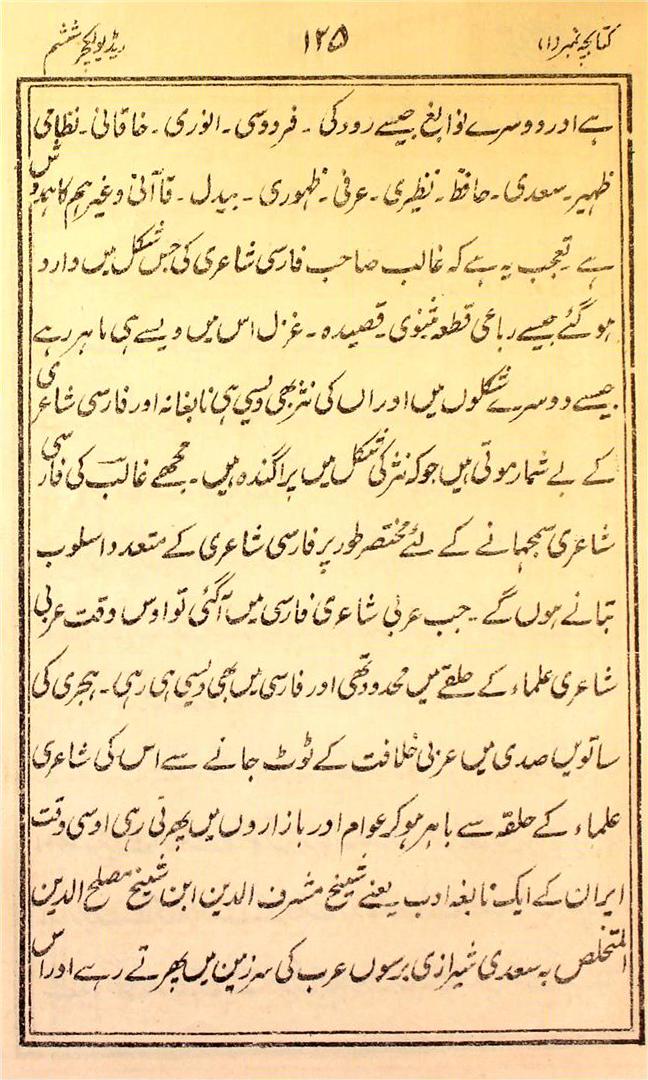 کتابچہ نمبر (۱) ۱۲۵ ریڈیو لکچر ششم
ہے اور دوسرے نوابغ جیسے رودکی - فردوسی - انوری - خاقانی - نظامی
ظہیر - سعدی - حافظ - نظیری - عرفی - ظہوری - بیدل - قاآنی وغیرہم کا ہمدوش
ہے - تعجب یہ ہے کہ غالب صاحب فارسی شاعری کی جس شکل میں وارد
ہو گئے جیسے رباعی قطعہ مثنوی - قصیدہ - غزل اس میں ویسے ہی ماہر رہے
جیسے دوسرے شکلوں میں اور اں کی نثر بھی ویسی ہی نابغانہ اور فارسی شاعری
کے بے شمار موتی ہیں جو کہ نثر کی شکل میں پراگندہ ہیں - مجھے غالب کی فارسی
شاعری سمجہانے کے لئے مختصر طور پر فارسی شاعری کے متعدد اسلوب
بتانے ہوں گے - جب عربی شاعری فارسی میں آگئی تو اوس وقت عربی
شاعری علماء کے حلقے میں محدود تھی اور فارسی میں بھی ویسی ہی رہی - ہجری کی
ساتویں صدی میں عربی خلافت کے ٹوٹ جانے سے اس کی شاعری
علماء کے حلقہ سے باہر ہو کر عوام اور بازاروں میں پھرتی رہی اوسی وقت
ایران کے ایک نابغہ ادب یعنے شیخ مشرف الدین ابن شیخ مصلح الدین
المتخلص بہ سعدی شیرازی برسوں عرب کی سرزمین میں پھرتے رہے اور اس